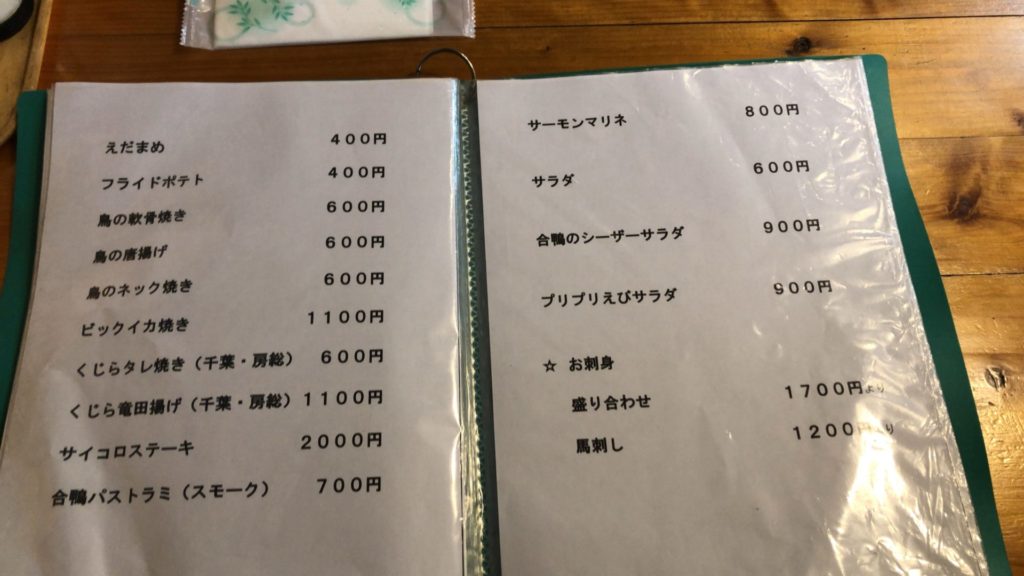 えだまめ 400円
フライドポテト 400円
鳥の軟骨焼き 600円
鳥の唐揚げ 600円
鳥のネック焼き 600円
ビックイカ焼き 1100円
くじらタレ焼き（千葉・房総） 600円
くじら竜田揚げ（千葉・房総） 1100円
サイコロステーキ 2000円
合鴨パストラミ（スモーク） 700円
サーモンマリネ 800円
サラダ 600円
合鴨のシーザーサラダ 900円
プリプリえびサラダ 900円
☆ お刺身
盛り合わせ 1700円より
馬刺し 1200円より